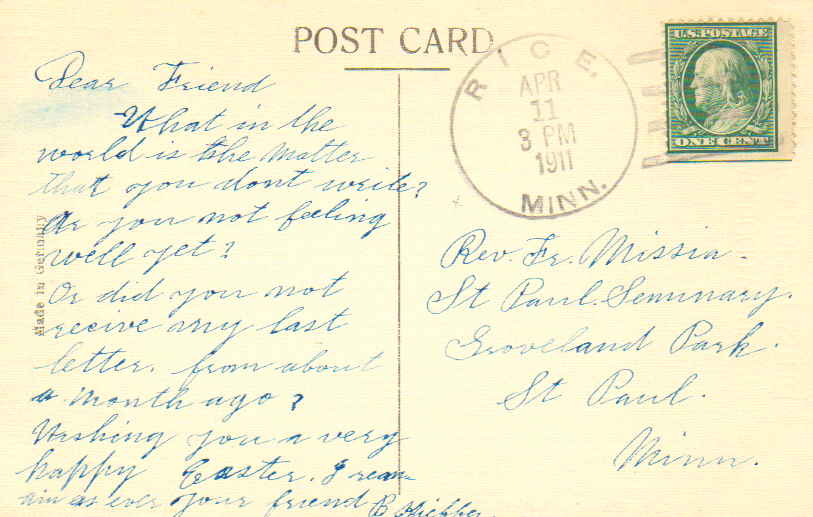 POST CARD.
Dear Friend
What in the
world is the Matter
that you dont write?
Ar you not feeling
well yet?
Or did you not
recive my last
letter. from about
a Month ago?
Wishing you a very
happy Easter. I rema-
ain as ever your friend
Made in Germany
RICE,
APR
11
3 PM
1911
MINN.
U.S. POSTAGE
ONE CENT
Rev. Fr. Missia.
St Paul. Seminary.
Groveland Park.
St Paul.
Minn.